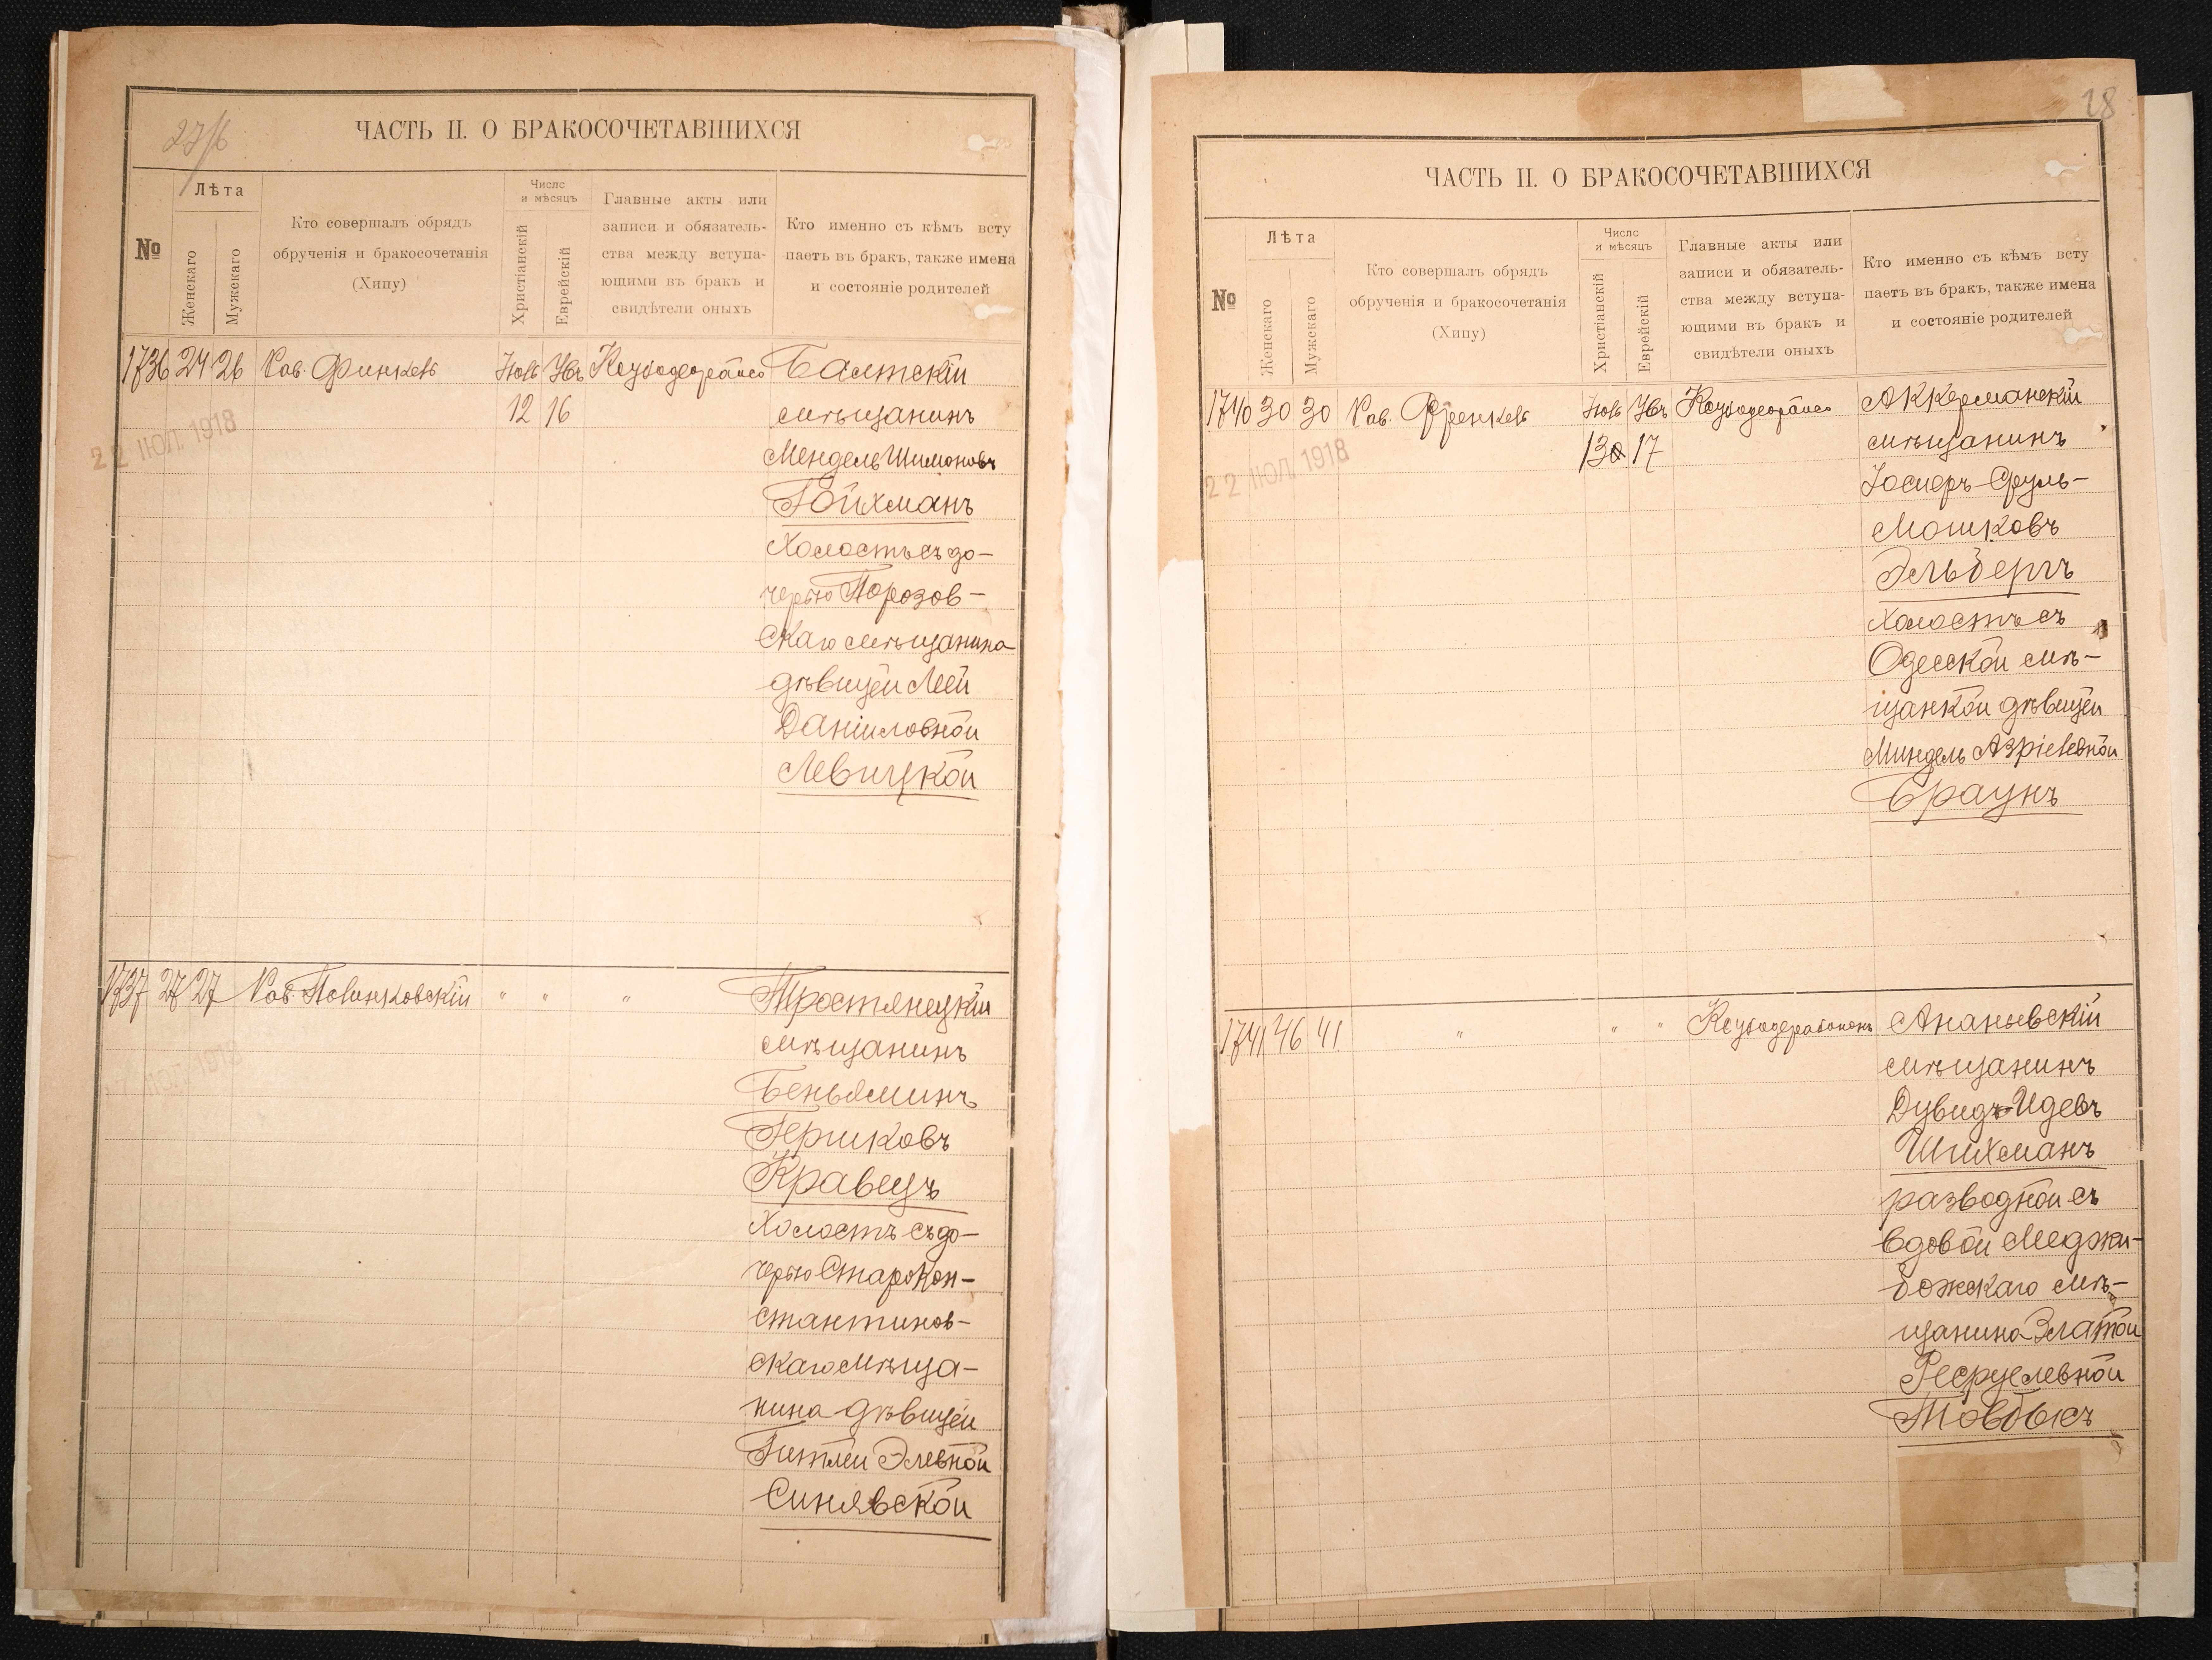 27/б
ЧАСТЬ II. О БРАКОСОЧЕТАВШИХСЯ
№
Лѣта
Женскаго
Мужскаго
Кто совершалъ обрядъ
обрученія и бракосочетанія
(Хипу)
Число
и мѣсяцъ
Христіанскій
Еврейскій
Главные акты или
записи и обязатель-
ства между вступа-
ющими въ бракъ и
свидѣтели оныхъ
Кто именно съ кѣмъ всту
паетъ въ бракъ, также имена
и состояніе родителей
1736 24 26 Рав. Финкель
12 16
22 ІЮЛ. 1918
Балтскій
мѣщанинъ
Мендель Шимоновъ
Гойхманъ
Холостъ съ до-
черью Порозов-
скаго мѣщанина
дѣвицей Леей
Даніиловной
Левицкой
1737 27 27 Рав. Полинковскій " " "
Тростянецкій
мѣщанинъ
Беньяминъ
Гершковъ
Кравецъ
Холостъ съ до-
черью Старокон-
стантинов-
скаго мѣща-
нина дѣвицей
Гитлей Элевной
Синявской
28
ЧАСТЬ II. О БРАКОСОЧЕТАВШИХСЯ
№
Лѣта
Женскаго
Мужскаго
Кто совершалъ обрядъ
обрученія и бракосочетанія
(Хипу)
Число
и мѣсяцъ
Христіанскій
Еврейскій
Главные акты или
записи и обязатель-
ства между вступа-
ющими въ бракъ и
свидѣтели оныхъ
Кто именно съ кѣмъ всту
паетъ въ бракъ, также имена
и состояніе родителей
1740 30 30 Рав. Френкель
13 17
22 ІЮЛ. 1918
Аккерманскій
мѣщанинъ
Іосифъ-Сруль-
Мошковъ
Эльбергъ
Холостъ съ
Одесской мѣ-
щанкой дѣвицей
Миндель Азріелевной
Браунъ
1741 46 41 " " "
Ананьевскій
мѣщанинъ
Дувидъ-Идевъ
Шихманъ
разводной съ
вдовой Меджи-
божскаго мѣ-
щанина Златой
Фесруелевной
Товбысъ